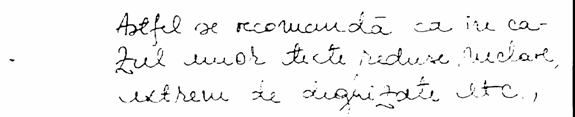 Astfel se recomandă ca în ca-
zul unor texte reduse, neclare,
extrem de degrizate etc.,